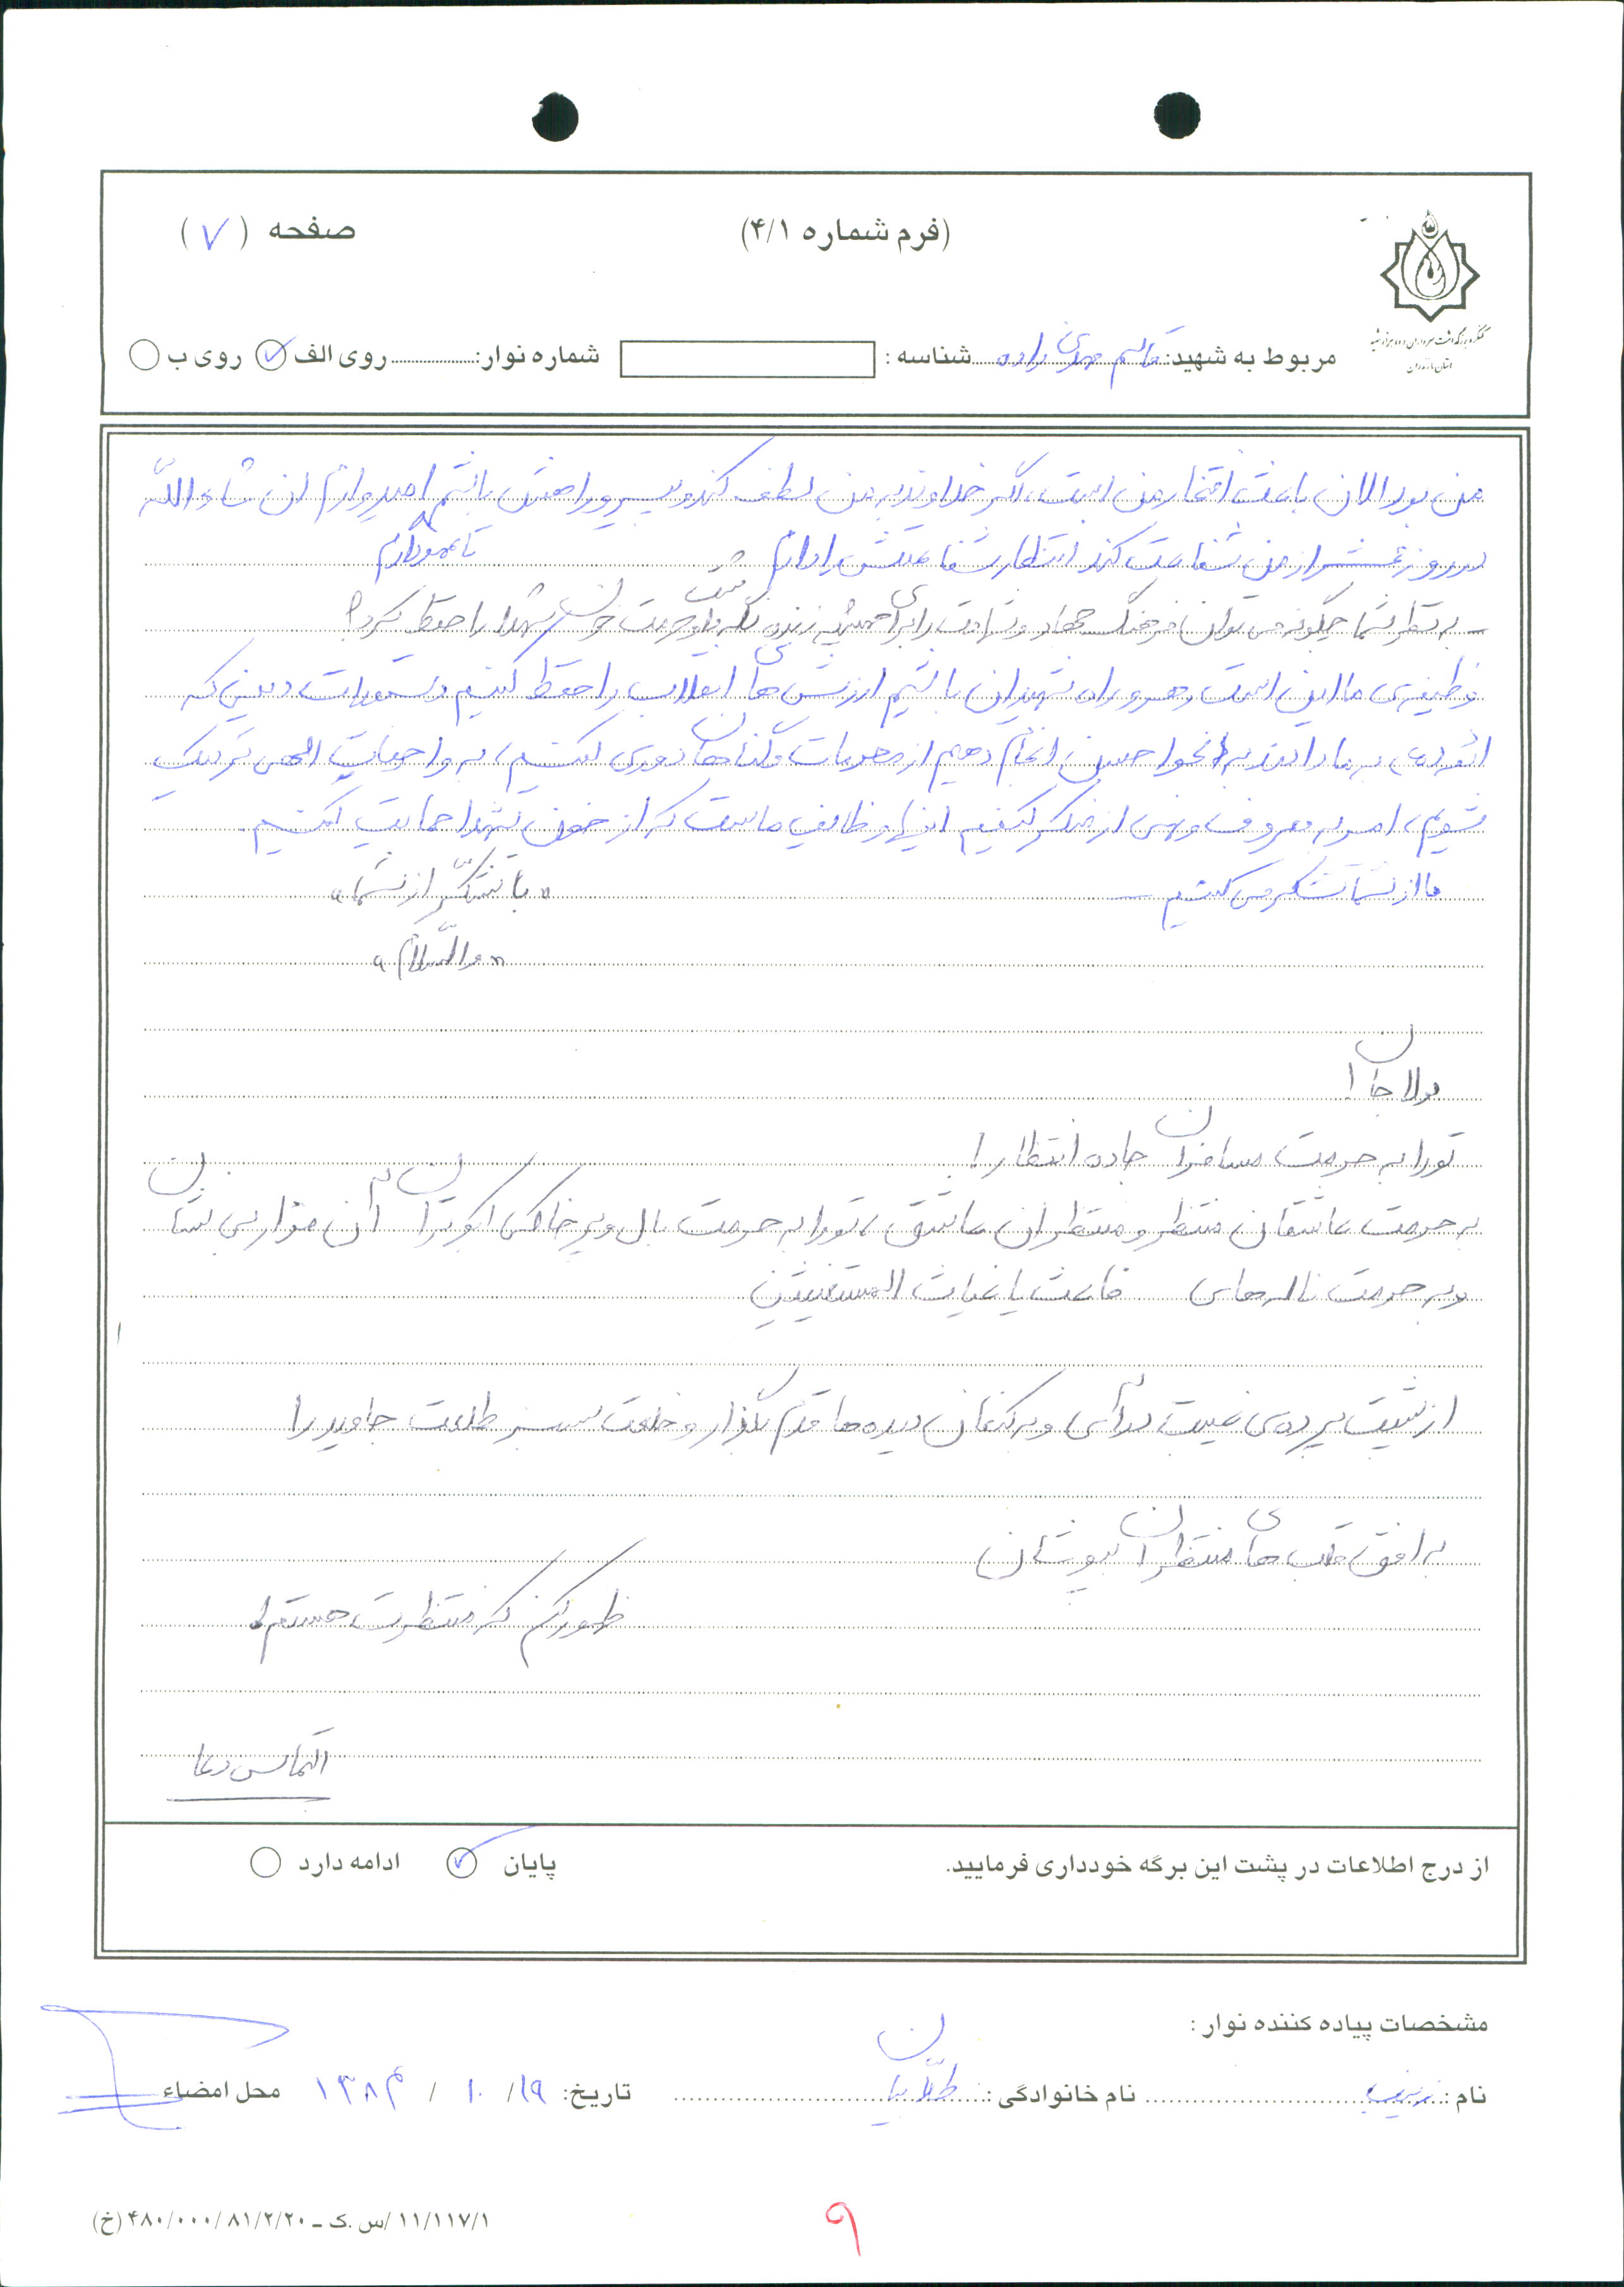 (فرم شماره ۴/۱)
صفحه (۷)
کنگره بزرگداشت سرداران و ده هزار شهید
استان مازندران
مربوط به شهید: قاسم مهدی زاده شناسه : شماره نوار: روی الف روی ب
من بود الان باعث افتخار من است، اگر خداوند به من لطف کند و پیرو راهش باشم امیدوارم ان شاء الله
در روز محشر از من شفاعت کند انتظار شفاعتش را دارم
ـ به نظر شما چگونه می توان فرهنگ جهاد و شهادت را برای همیشه زنده نگه داشت و حرمت خون شهدا را حفظ کرد؟
وظیفه ی ما این است رهرو راه شهیدان باشیم ارزش های انقلاب را حفظ کنیم دستورات دینی که
به ما دادند به نحو احسن انجام دهیم از محرمات و گناهان دوری کنیم، به واجبات الهی نزدیک
شویم، امر به معروف و نهی از منکر کنیم اینها وظایف ماست که از خون شهدا حمایت کنیم.
ما از شما تشکر می کنیم — «با تشکّر از شما»
«والسّلام»
مولا جان!
تو را به حرمت مسافران جاده انتظار!
به حرمت عاشقان منتظر و منتظران عاشق، تو را به حرمت بال و پر خاکی کبوتران آن مزار بی نشان
و به حرمت ناله های فاغث یا غیاث المستغیثین
از پشت پرده ی غیبت درآی و بر کنعان دیده ها قدم بگذار و خلعت سبز طلعت جاوید را
بر افق قلب های منتظران بپوشان
ظهور کن که منتظرت هستم!
التماس دعا
از درج اطلاعات در پشت این برگه خودداری فرمایید. پایان ادامه دارد
مشخصات پیاده کننده نوار :
نام : زینب نام خانوادگی : طلّابیان تاریخ: ۱۹/ ۱۰ / ۱۳۸۴ محل امضاء
۹
۱۱/۱۱۷/۱ /س.ک ـ ۴۸۰/۰۰۰/۸۱/۲/۲۰ (خ)